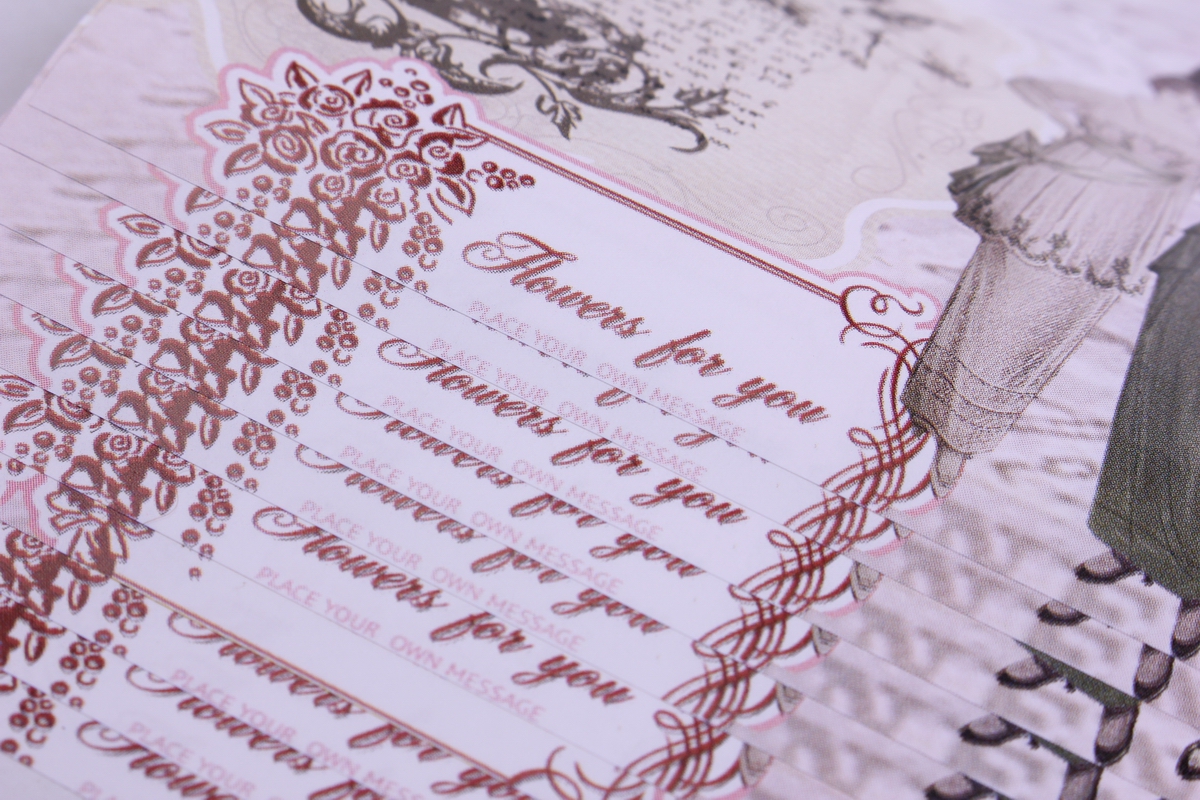 Flowers for you
PLACE YOUR OWN MESSAGE
PLACE YOUR OWN MESSAGE
Flowers for you
PLACE YOUR OWN MESSAGE
Flowers for you
PLACE YOUR OWN MESSAGE
Flowers for you
PLACE YOUR OWN MESSAGE
Flowers for you
PLACE YOUR OWN MESSAGE
Flowers for you
PLACE YOUR OWN MESS
Flowers for
PLACE YOUR
Flowers
PLACE